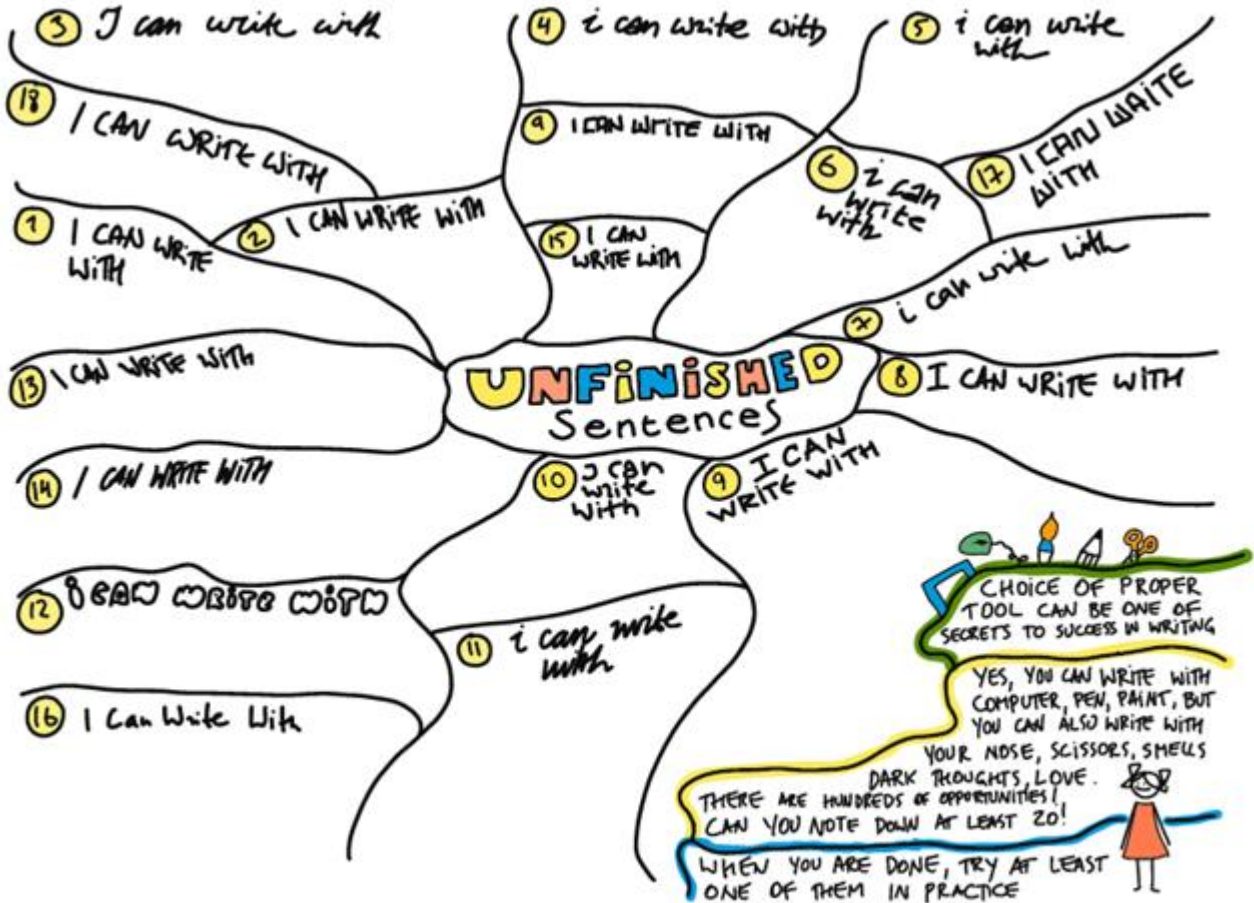 3 I can write with
4 i can write with
5 i can write
with
18 I CAN WRITE WITH
9 I CAN WRITE WITH
17 I CAN WRITE
WITH
6 i can
write
with
1 I CAN WRITE
WITH
2 I CAN WRITE WITH
15 I CAN
WRITE WITH
7 i can write with
13 I CAN WRITE WITH
UNFINISHED
Sentences
8 I CAN WRITE WITH
14 I CAN WRITE WITH
10 I can
write
with
9 I CAN
WRITE WITH
12 I CAN WRITE WITH
11 i can write
with
16 I Can Write With
CHOICE OF PROPER
TOOL CAN BE ONE OF
SECRETS TO SUCCESS IN WRITING
YES, YOU CAN WRITE WITH
COMPUTER, PEN, PAINT, BUT
YOU CAN ALSO WRITE WITH
YOUR NOSE, SCISSORS, SMELLS
DARK THOUGHTS, LOVE.
THERE ARE HUNDREDS OF OPPORTUNITIES!
CAN YOU NOTE DOWN AT LEAST 20!
WHEN YOU ARE DONE, TRY AT LEAST
ONE OF THEM IN PRACTICE